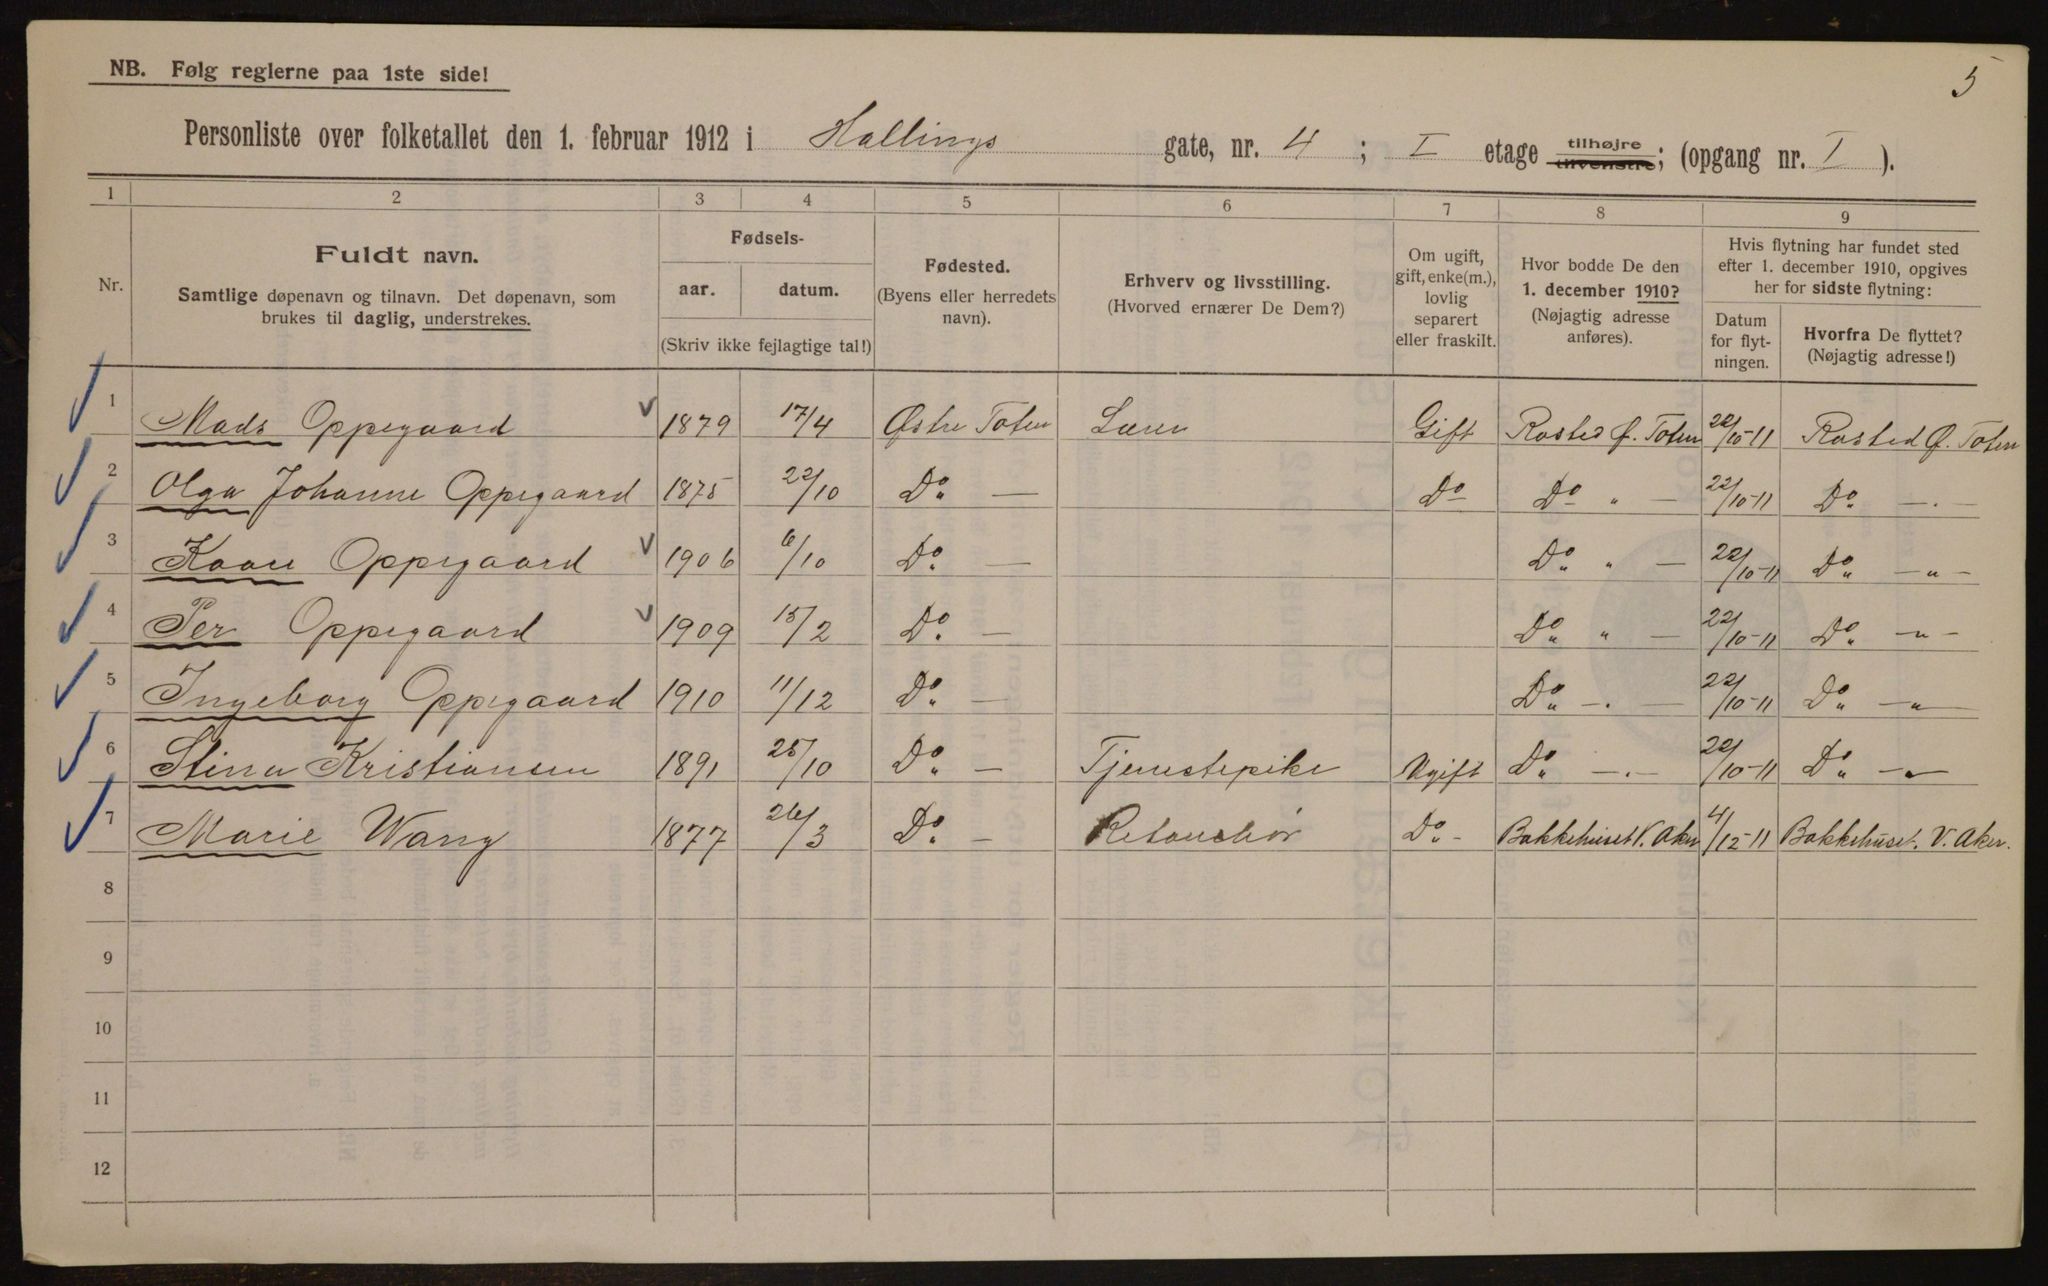 NB. Følg reglerne paa 1ste side!
5
Personliste over folketallet den 1. februar 1912 i Hallings gate, nr. 4 ; I etage tilhøjre tilvenstre; (opgang nr. I ).
1 2 3 4 5 6 7 8 9
Nr.
Fuldt navn.
Samtlige døpenavn og tilnavn. Det døpenavn, som
brukes til daglig, understrekes.
Fødsels-
aar. datum.
(Skriv ikke fejlagtige tal!)
Fødested.
(Byens eller herredets
navn).
Erhverv og livsstilling.
(Hvorved ernærer De Dem?)
Om ugift,
gift, enke(m.),
lovlig
separert
eller fraskilt.
Hvor bodde De den
1. december 1910?
(Nøjagtig adresse
anføres).
Hvis flytning har fundet sted
efter 1. december 1910, opgives
her for sidste flytning:
Datum
for flyt-
ningen.
Hvorfra De flyttet?
(Nøjagtig adresse!)
1 Mads Oppegaard 1879 17/4 Østre Toten Lærer Gift Rosted Ø. Toten 22/10-11 Rosted Ø. Toten
2 Olga Johanne Oppegaard 1875 22/10 Do — Do Do " — 22/10-11 Do — " —
3 Kaare Oppegaard 1906 6/10 Do — Do " — 22/10-11 Do — " —
4 Per Oppegaard 1909 15/2 Do — Do " — 22/10-11 Do — " —
5 Ingeborg Oppegaard 1910 11/12 Do — Do — " — 22/10-11 Do — " —
6 Stina Kristiansen 1891 25/10 Do — Tjenestepike Ugift Do — " — 22/10-11 Do — " —
7 Marie Wang 1877 26/3 Do — Retouchør Do - Bakkehuset V. Aker 4/12-11 Bakkehuset. V. Aker.
8
9
10
11
12